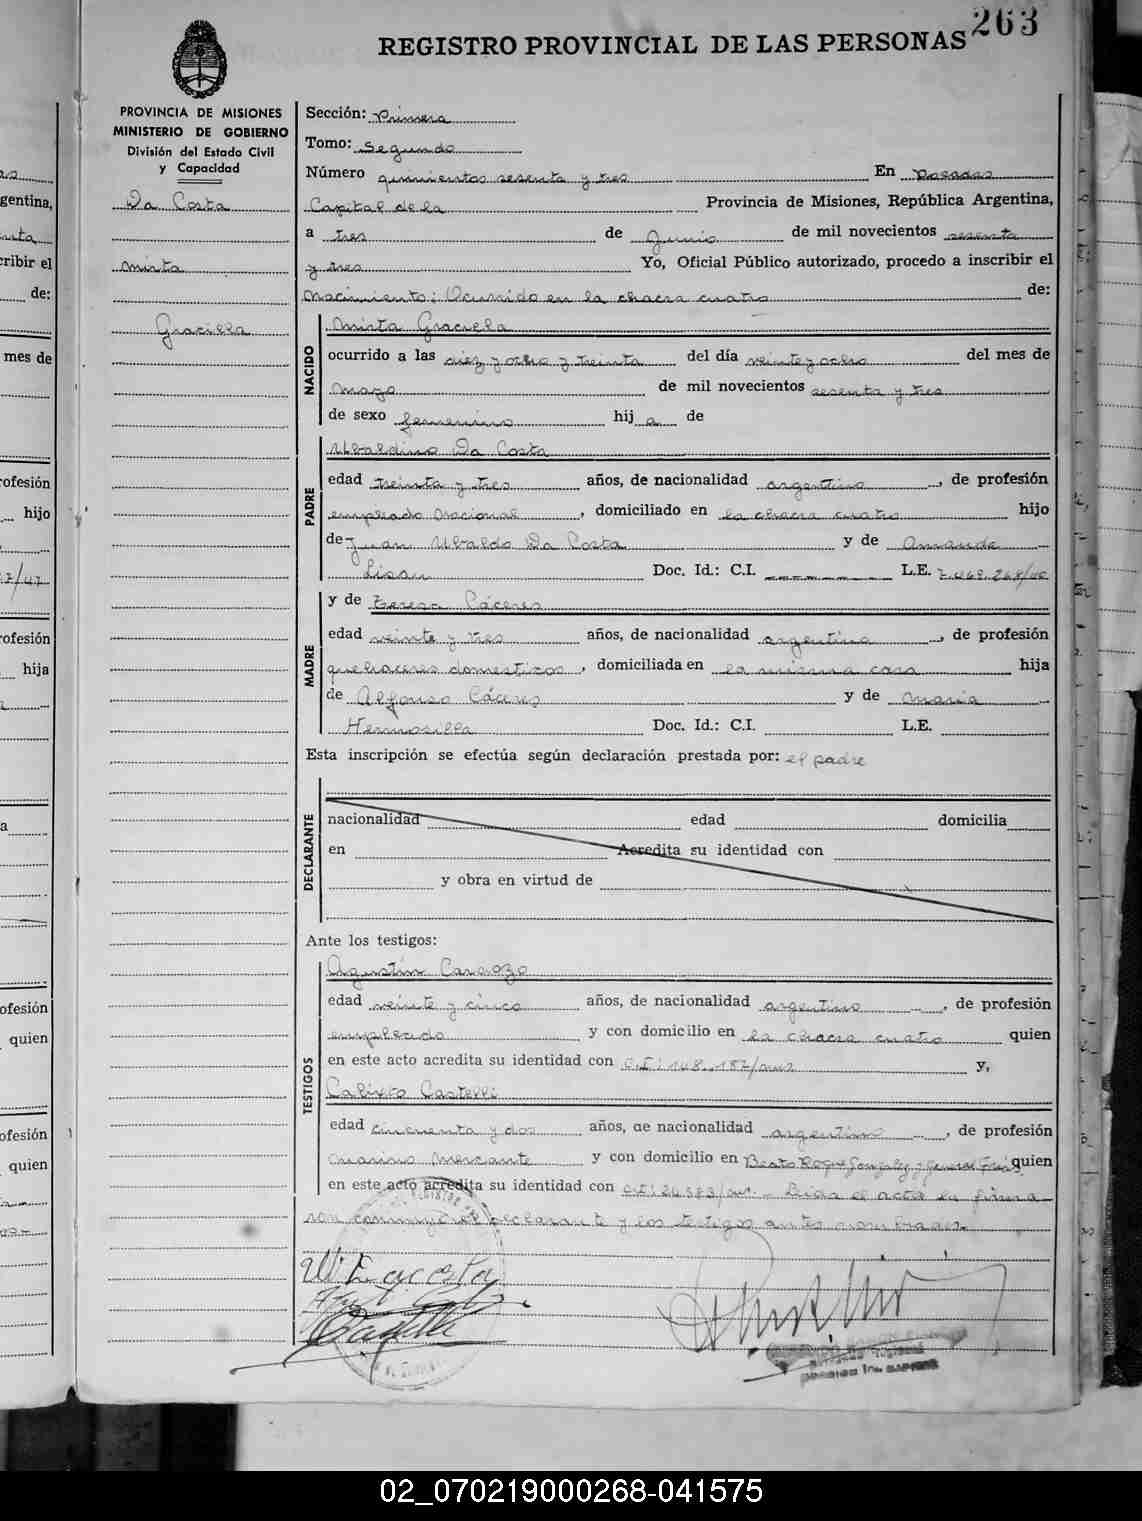 263
REGISTRO PROVINCIAL DE LAS PERSONAS
PROVINCIA DE MISIONES
MINISTERIO DE GOBIERNO
División del Estado Civil
y Capacidad
Da Costa
Mirta
Graciela
Sección: Primera
Tomo: Segundo
Número quinientos sesenta y tres En Posadas
Capital de la Provincia de Misiones, República Argentina,
a tres de Junio de mil novecientos sesenta
y tres Yo, Oficial Público autorizado, procedo a inscribir el
Nacimiento: Ocurrido en la chacra cuatro de:
NACIDO
Mirta Graciela
ocurrido a las diez y ocho y treinta del día veinte y ocho del mes de
mayo de mil novecientos sesenta y tres
de sexo femenino hij a de
PADRE
Ubaldino Da Costa
edad treinta y tres años, de nacionalidad argentino, de profesión
empleado nacional, domiciliado en la chacra cuatro hijo
de Juan Ubaldo Da Costa y de Amanda
Doc. Id.: C.I. L.E.
MADRE
y de Teresa Cáceres
edad veinte y tres años, de nacionalidad argentina, de profesión
quehaceres domesticos, domiciliada en la misma casa hija
de Alfonso Cáceres y de Maria
Hermosilla Doc. Id.: C.I. L.E.
Esta inscripción se efectúa según declaración prestada por: el padre
DECLARANTE
nacionalidad edad domicilia
en Acredita su identidad con
y obra en virtud de
Ante los testigos:
TESTIGOS
Agustín Cardozo
edad veinte y cinco años, de nacionalidad argentino, de profesión
empleado y con domicilio en la chacra cuatro quien
en este acto acredita su identidad con C.I: 148.187/ y,
Calixto Castelli
edad cincuenta y dos años, de nacionalidad argentino, de profesión
Marino Mercante y con domicilio en Beato Roque Gonzalez y General Frias quien
en este acto acredita su identidad con C.I: 24.583/ Leida el acta la firma
con conmigo el declarante y los testigos antes nombrados.
02_070219000268-041575